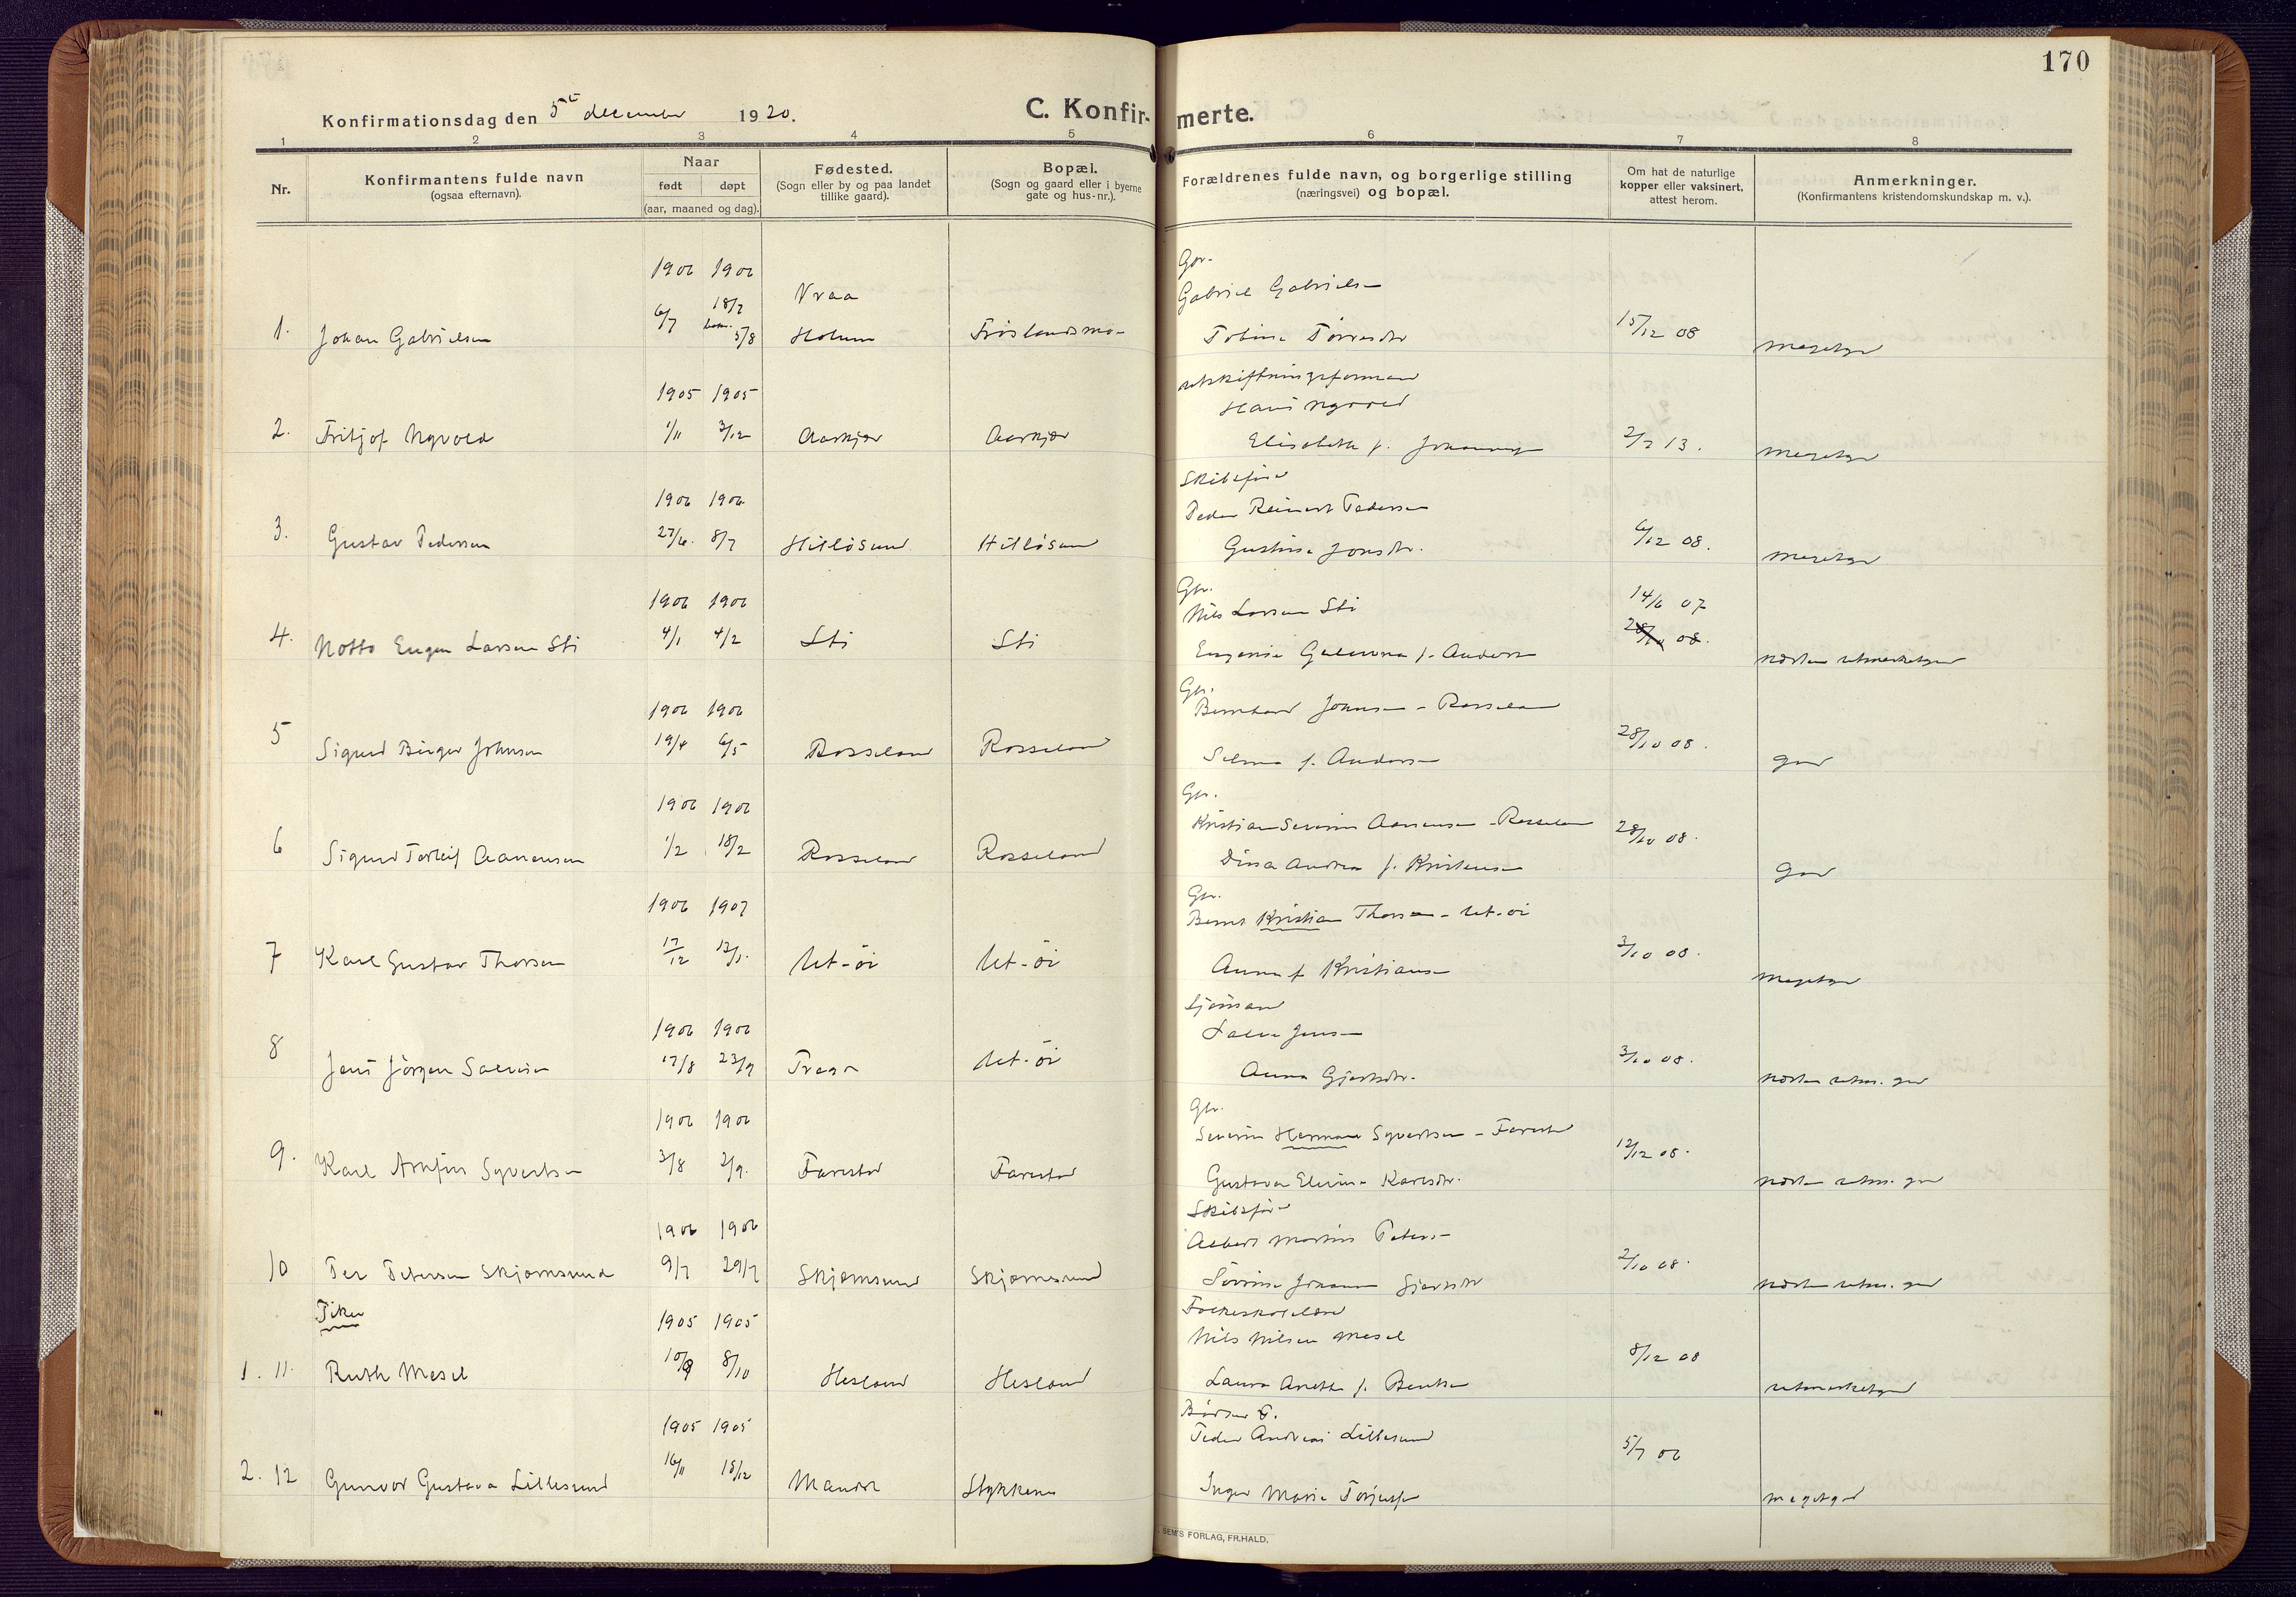 170
Konfirmationsdag den 5te december 1920.
C. Konfir-
merte.
1 2 3 4 5 6 7 8
Nr.
Konfirmantens fulde navn
(ogsaa efternavn).
Naar
født døpt
(aar, maaned og dag).
Fødested.
(Sogn eller by og paa landet
tillike gaard).
Bopæl.
(Sogn og gaard eller i byerne
gate og hus-nr.).
Forældrenes fulde navn, og borgerlige stilling
(næringsvei) og bopæl.
Om hat de naturlige
kopper eller vaksinert,
attest herom.
Anmerkninger.
(Konfirmantens kristendomskundskap m. v.).
1906 1906 Gbr.
6/7 18/7 Vraa Gabriel Gabrielsen
1. Johan Gabrielsen hjem. 5/8 Holum Frøslandsmo Tobine Tørresdtr 15/12 08 megetgod
1905 1905 utskiftningsformand
Hans Nyvold
2. Fritjof Nyvold 1/11 3/12 Aaskjær Aaskjær Elisabeth f. 2/7 13. megetgod
1906 1906 Skibsfører
Peder Reinert Pedersen
3. Gustav Pedersen 27/6. 8/7 Hilløsund Hilløsund Gustine Jonsdtr. 6/12 08. megetgod
1906 1906 Gbr.
Nils Larsen Sti 14/6 07
4. Notto Eugen Larsen Sti 4/1 4/2 Sti Sti Eugenie f. Andersen 28/10 08. næsten utmerketgod
1906 1906 Gbr.
Bernhard Johnsen - Rosseland
5 Sigurd Birger Johnsen 19/4 6/5 Rosseland Rosseland Selma f. Andersen 28/10 08. god
1906 1906 Gbr.
Kristian Severin Aanensen - Rosseland
6 Sigurd Torleif Aanensen 1/2 18/2 Rosseland Rosseland Dina Andrea f. Kristensen 28/10 08. god
1906 1907 Gbr.
Bernt Kristian Thorsen - Ut-öi
7 Karl Gustav Thorsen 17/12 13/1. Ut-öi Ut-öi Anna f. Kristiansen 3/10 08. megetgod
1906 1906 Sjømand
Salve Jensen
8 Jens Jörgen Salvesen 17/8 23/9 Ut-öi Anna Gjertsdtr. 3/10 08. næsten utm. god
1906 1906 Gbr.
Severin Herman Syvertsen - Farestad
9. Karl Arnfin Syvertsen 3/8 2/9. Farestad Farestad Gustava Elevine Karlsdtr. 12/12 08. næsten utm. god
1906 1906 Skibsfører
Albert Martin Petersen
10 Per Petersen Skjernsund 9/7 29/7 Skjernsund Skjernsund Sörine Johanne Gjertsdtr 2/10 08. næsten utm. god
Piker 1905 1905 Folkeskolelærer
Nils Nilsen Mesel
1. 11. Ruth Mesel 10/9 8/10 Hesland Hesland Laura Anette f. Bentsen 8/12 08 utmerketgod
1905 1905
Peder Andreas Lillesund
2. 12 Gunvor Gustava Lillesund 16/11 18/12 Mandal Stykkene Inger Marie 5/7 06 megetgod
SEM'S FORLAG, FR.HALD.